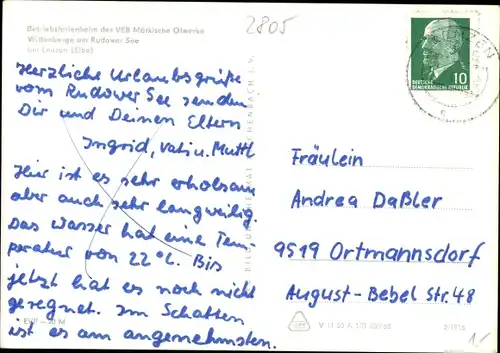 2805
Betriebsferienheim des VEB Märkische Ölwerke
Wittenberge am Rudower See
bei Lenzen (Elbe)
Herzliche Urlaubsgrüße
vom Rudower See senden
Dir und Deinen Eltern
Ingrid, Vati u. Mutti
Hier ist es sehr erholsam
aber auch sehr langweilig.
Das Wasser hat eine Tem-
peratur von 22°C. Bis
jetzt hat es noch nicht
geregnet. Im Schatten
ist es am angenehmsten.
10
DEUTSCHE
DEMOKRATISCHE REPUBLIK
Fräulein
Andrea Daßler
9519 Ortmannsdorf
August-Bebel Str. 48